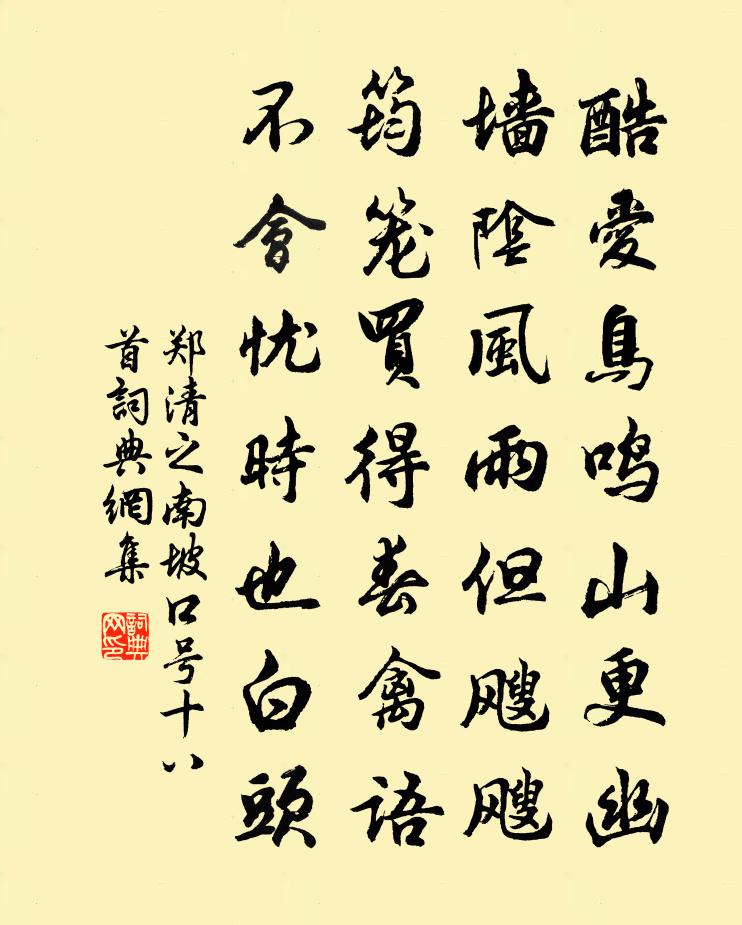 酷愛鳥鸣山更幽
墙陰風雨但飕飕
筠笼買得春禽語
不會忧時也白頭
郑清之南坡口号十八
首詞典網集
詞典
网印